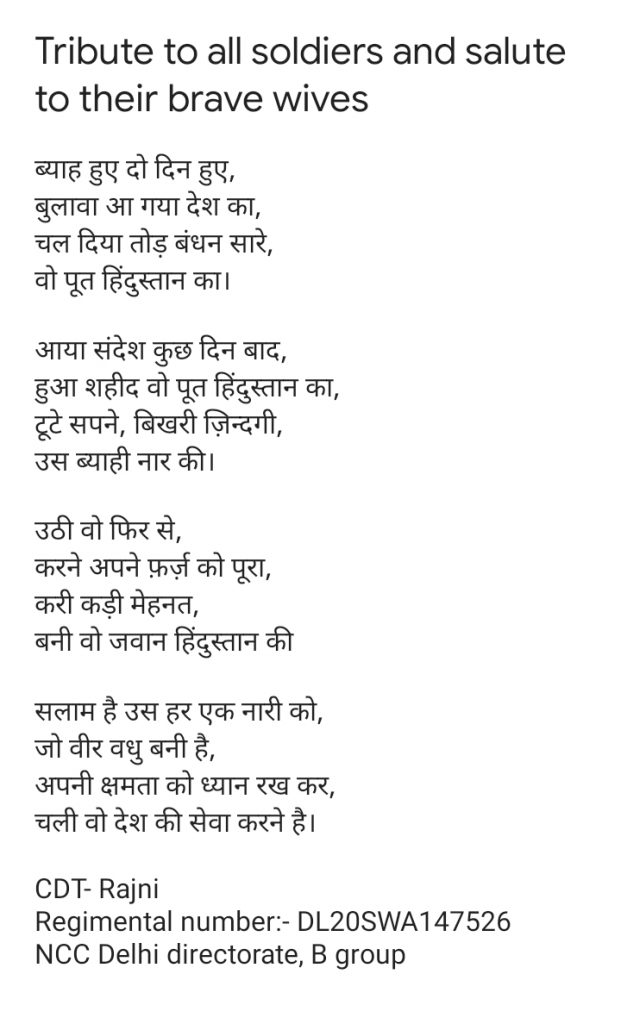 Tribute to all soldiers and salute
to their brave wives
ब्याह हुए दो दिन हुए,
बुलावा आ गया देश का,
चल दिया तोड़ बंधन सारे,
वो पूत हिंदुस्तान का।
आया संदेश कुछ दिन बाद,
हुआ शहीद वो पूत हिंदुस्तान का,
टूटे सपने, बिखरी ज़िन्दगी,
उस ब्याही नार की।
उठी वो फिर से,
करने अपने फ़र्ज़ को पूरा,
करी कड़ी मेहनत,
बनी वो जवान हिंदुस्तान की
सलाम है उस हर एक नारी को,
जो वीर वधु बनी है,
अपनी क्षमता को ध्यान रख कर,
चली वो देश की सेवा करने है।
CDT- Rajni
Regimental number:- DL20SWA147526
NCC Delhi directorate, B group